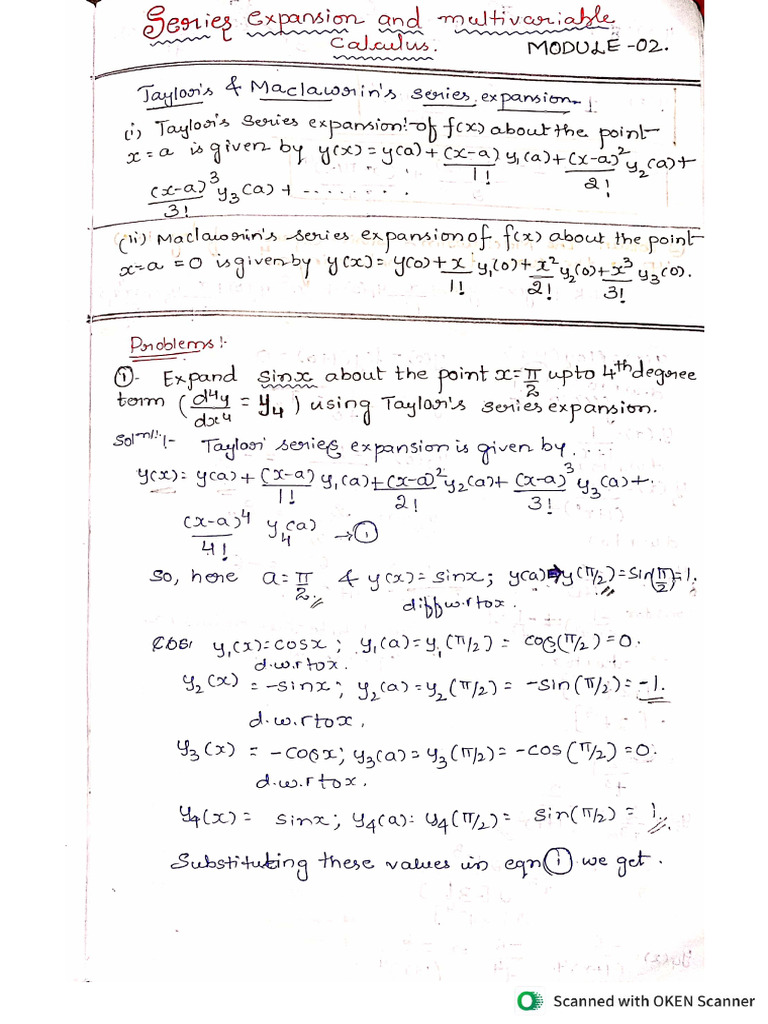 Series Expansion and multivariable
Calculus. MODULE -02.
Taylor's & Maclaworin's series expansion.
(i) Taylor's series expansion: of f(x) about the point
x=a is given by y(x)=y(a)+(x-a)/1! y₁(a)+(x-a)²/2! y₂(a)+
(x-a)³/3! y₃(a)+ ........
(ii) Maclaworin's series expansion of f(x) about the point
x=a=0 is given by y(x)=y(0)+x/1! y₁(0)+x²/2! y₂(0)+x³/3! y₃(0).
Problems:-
①- Expand sinx about the point x=π/2 upto 4th degree
term (d⁴y/dx⁴ = y₄) using Taylor's series expansion.
Solⁿ:- Taylor series expansion is given by.
y(x)= y(a)+(x-a)/1! y₁(a)+(x-a)²/2! y₂(a)+(x-a)³/3! y₃(a)+
(x-a)⁴/4! y₄(a) →①
So, here a=π/2 & y(x)=sinx; y(a)⇒y(π/2)=sin(π/2)=1.
diff w.r to x.
y₁(x)=cosx; y₁(a)=y₁(π/2)= cos(π/2)=0.
d.w.r to x.
y₂(x) = -sinx; y₂(a)=y₂(π/2)= -sin(π/2)=-1.
d.w.r to x,
y₃(x) = -cosx; y₃(a)=y₃(π/2)= -cos(π/2)=0.
d.w.r to x,
y₄(x)= sinx; y₄(a)= y₄(π/2)= sin(π/2)=1.
Substituting these values in eqn ① we get.
Scanned with OKEN Scanner